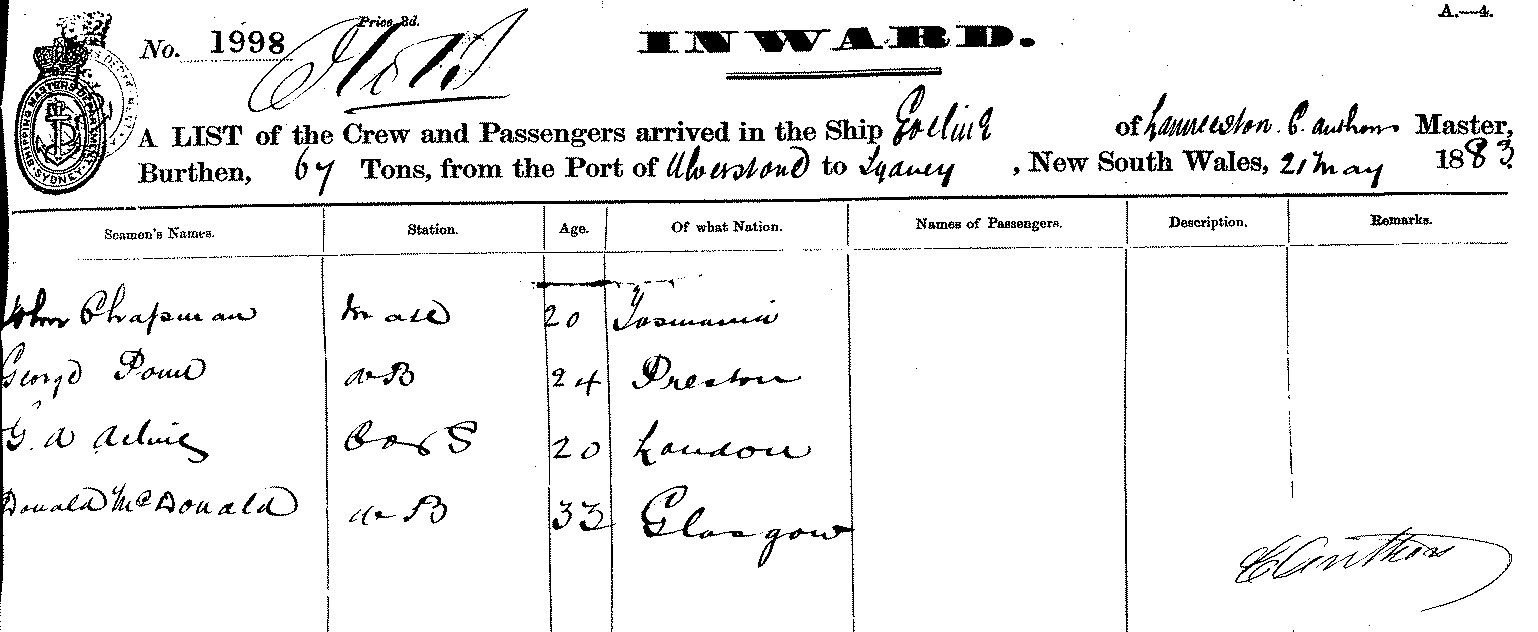 A.—4.
Price 3d.
No. 1998
INWARD.
SHIPPING MASTERS DEPARTMENT SYDNEY
A LIST of the Crew and Passengers arrived in the Ship of Launceston. C. Anthon Master,
Burthen, 67 Tons, from the Port of Ulverstone to Sydney, New South Wales, 21 May 1883
Seamen's Names. Station. Age. Of what Nation. Names of Passengers. Description. Remarks.
John Chapman Mate 20 Tasmania
George AB 24 Preston
G. A 20 London
Donald McDonald AB 33 Glasgow
C Anthon